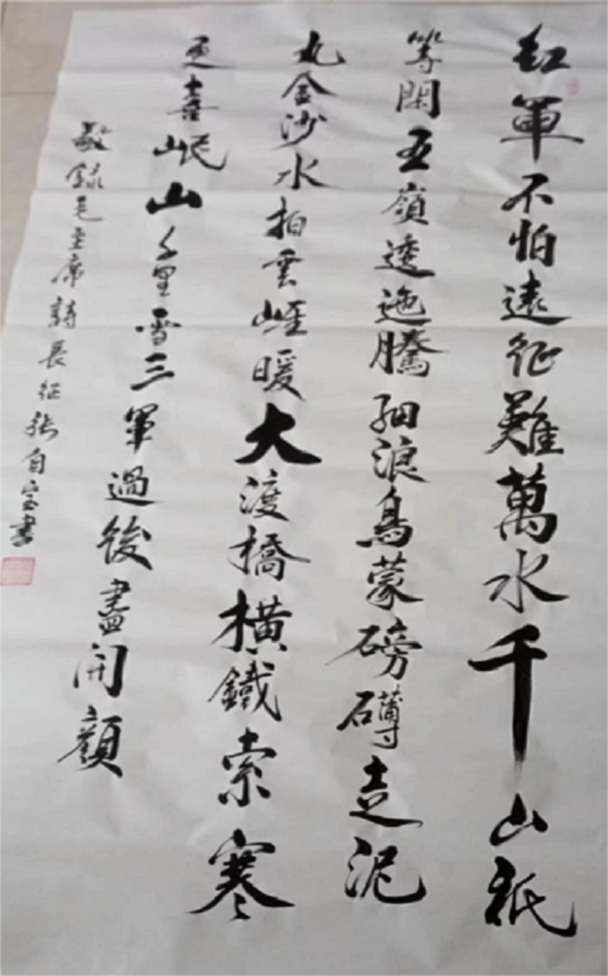 紅軍不怕遠征難萬水千山祇
等閑五嶺逶迤騰細浪烏蒙磅礴走泥
丸金沙水拍雲崖暖大渡橋橫鐵索寒
更喜岷山千里雪三軍過後盡開顏
敬録毛主席詩長征張自宝書